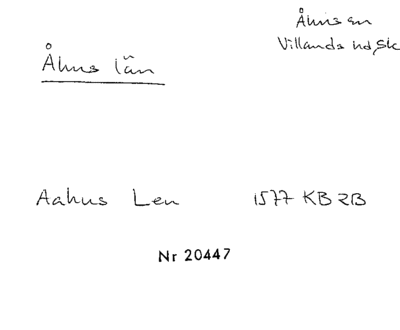 Åhus län
Åhus sn
Villands hd, Sk
Aahus Len 1577 KB 2B
Nr 20447